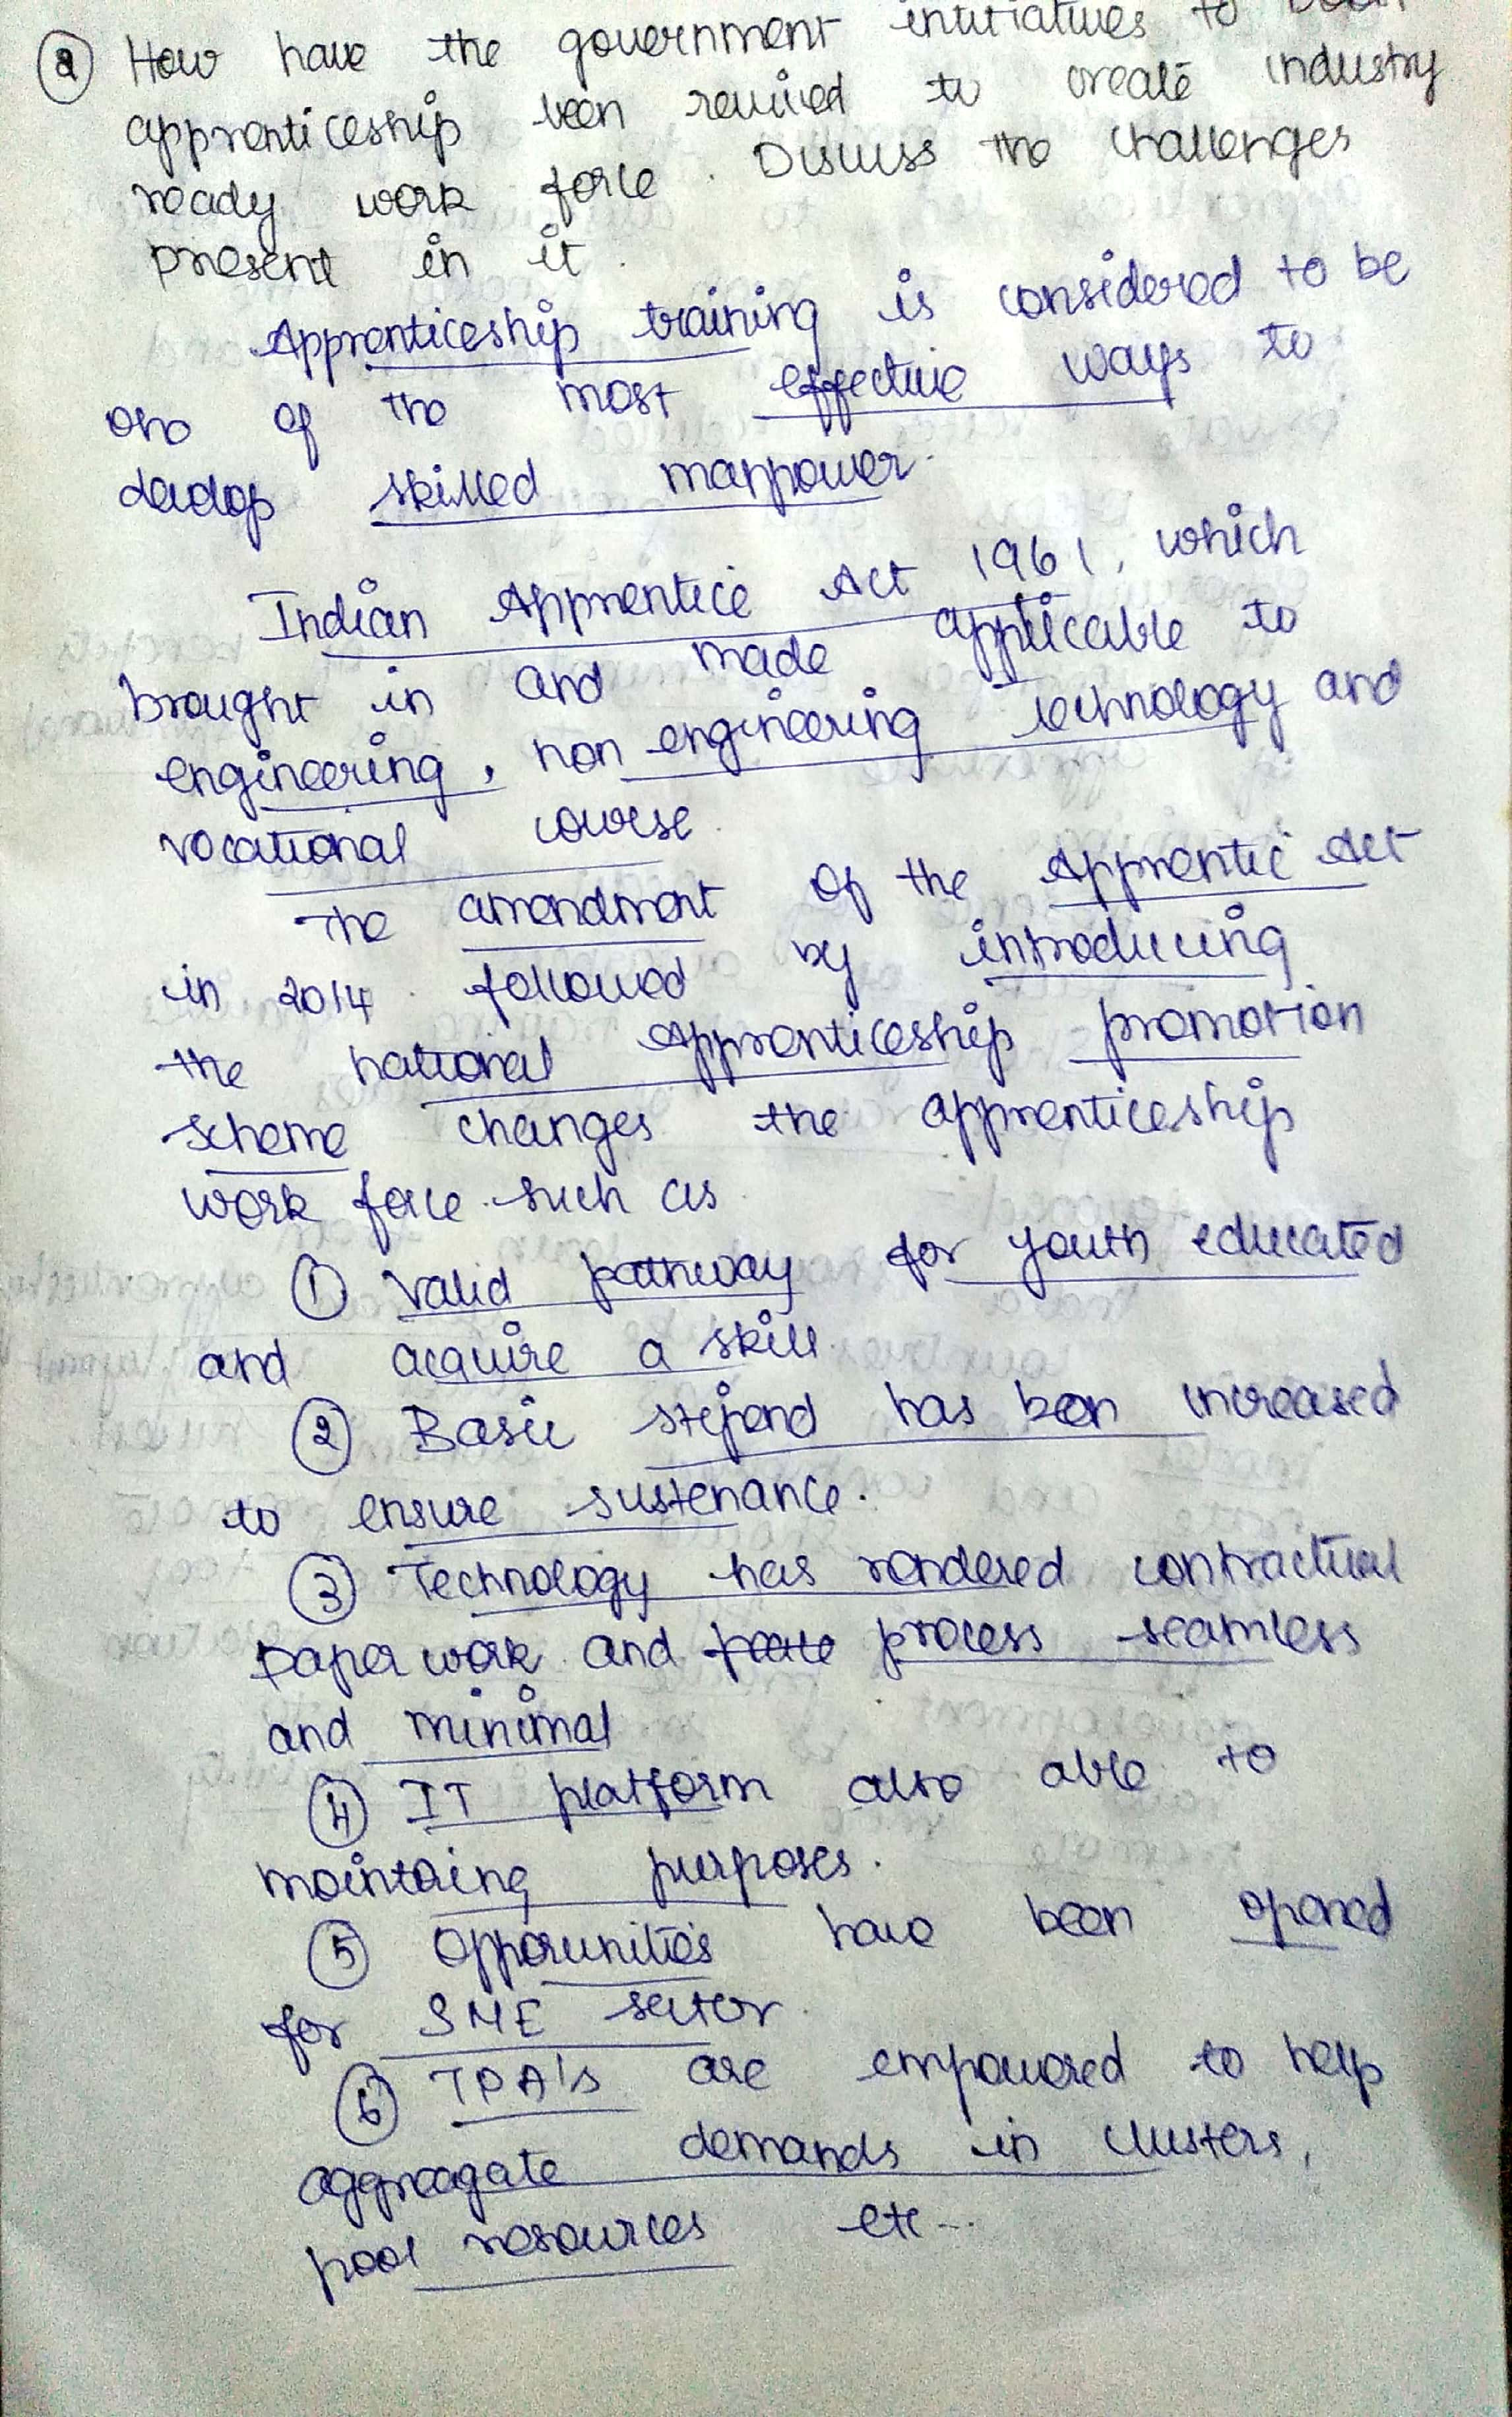 ② How have the government intitiatives to
apprenticeship been revived to create industry
ready work force. Discuss the challenges
present in it.
Apprenticeship training is considered to be
one of the most effective ways to
develop skilled manpower.
Indian Apprentice Act 1961, which
brought in and made applicable to
engineering, non engineering technology and
vocational course.
The amendment of the Apprentic Act
in 2014 followed by introducing
the national Apprenticeship promotion
scheme changes the apprenticeship
work force such as
① Valid pathway for youth educated
and acquire a skill.
② Basic stipend has been increased
to ensure sustenance.
③ Technology has rendered contractual
paper work and process seamless
and minimal
④ IT platform also able to
maintaing purposes.
⑤ Opporunities have been opened
for SME sector.
⑥ TPA's are empowered to help
aggreagate demands in clusters,
pool resources etc...